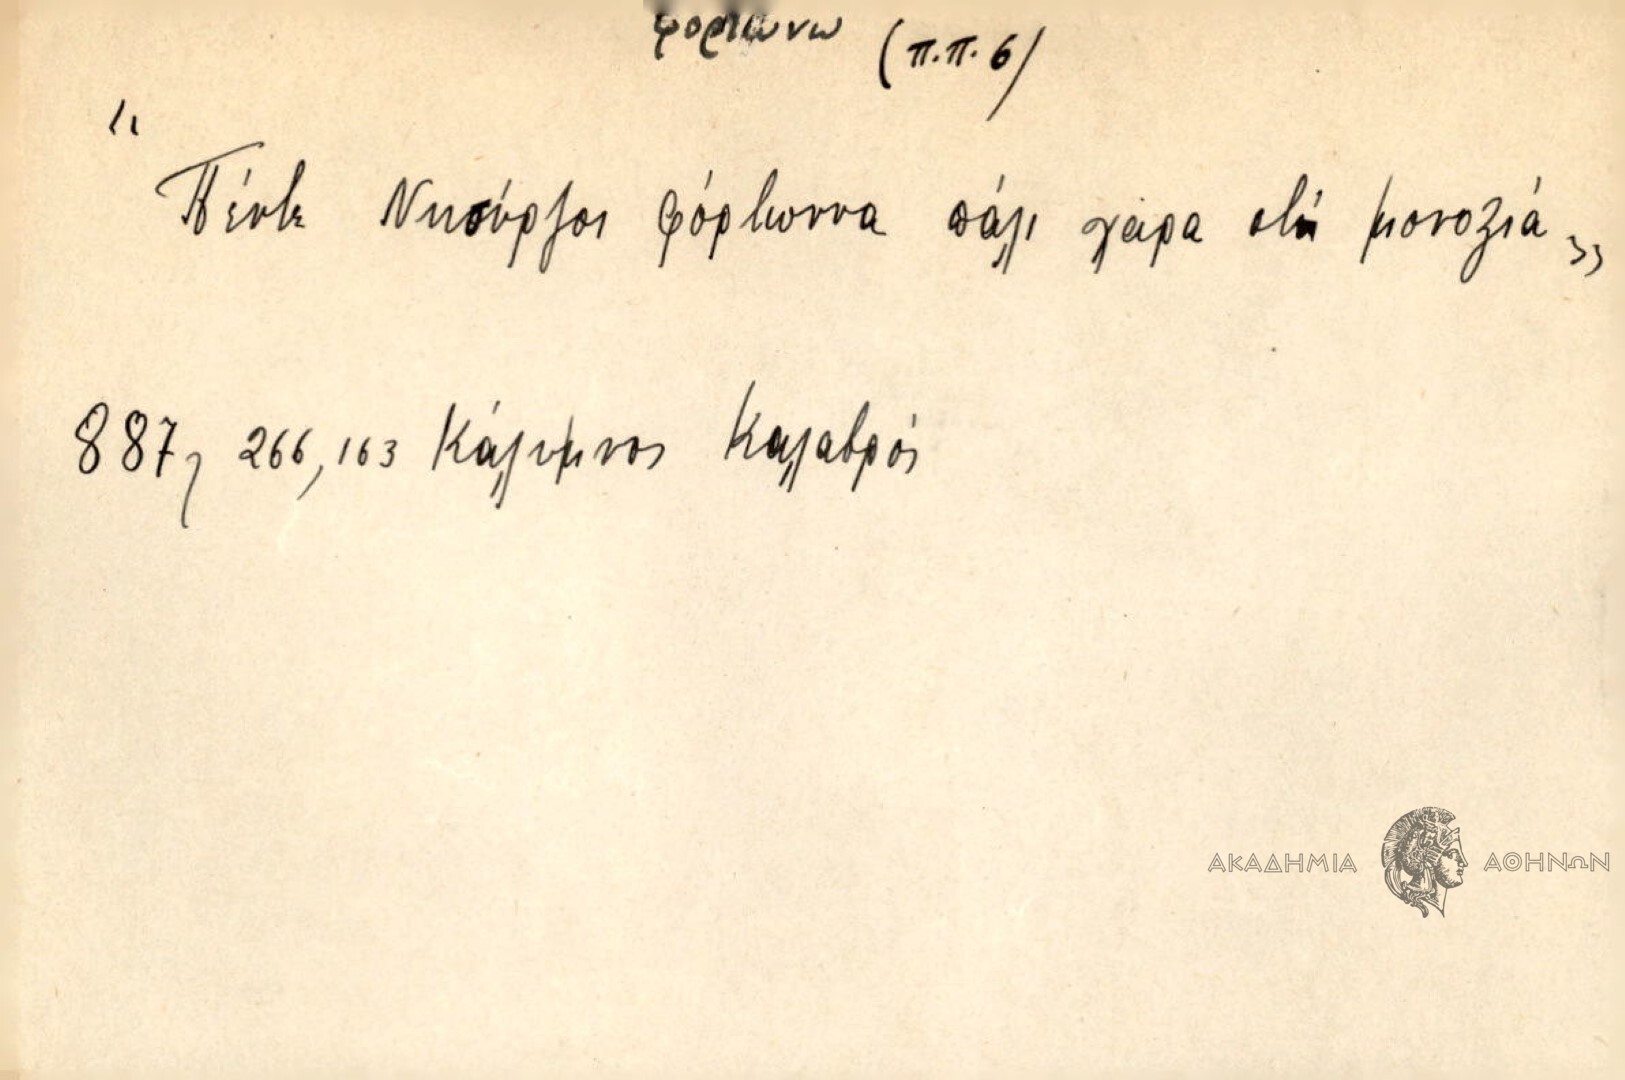 φορτώνω (π.π. 6)
"Πέντε Νισύρζοι φόρτωννα πάλι γάρα στή μονοξιά„
887, 266, 163 Κάλυμνος Καλαβρός
ΑΚΑΔΗΜΙΑ ΑΘΗΝΩΝ